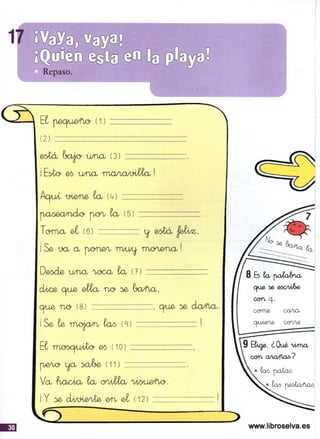 17 ¡Vaya, vaya!
¡Quién está en la playa!
Repaso.
El pequeño (1)
(2)
está bajo una (3) .
¡Esto es una maravilla!
Aquí viene la (4)
paseando por la (5) .
Toma el (6) y está feliz.
¡Se va a poner muy morena!
Desde una roca la (7)
dice que ella no se baña,
que no (8) , que se daña.
¡Se le mojan las (9) !
El mosquito es (10) ,
pero ya sabe (11) .
Va hacia la orilla risueño.
¡Y se divierte en el (12) !
7
No se baña la
8 Es la palabra
que se escribe
con q.
come cara
quiere corre
9 Elige. ¿Qué rima
con arañas?
las patas
las pestañas
30
www.libroselva.es